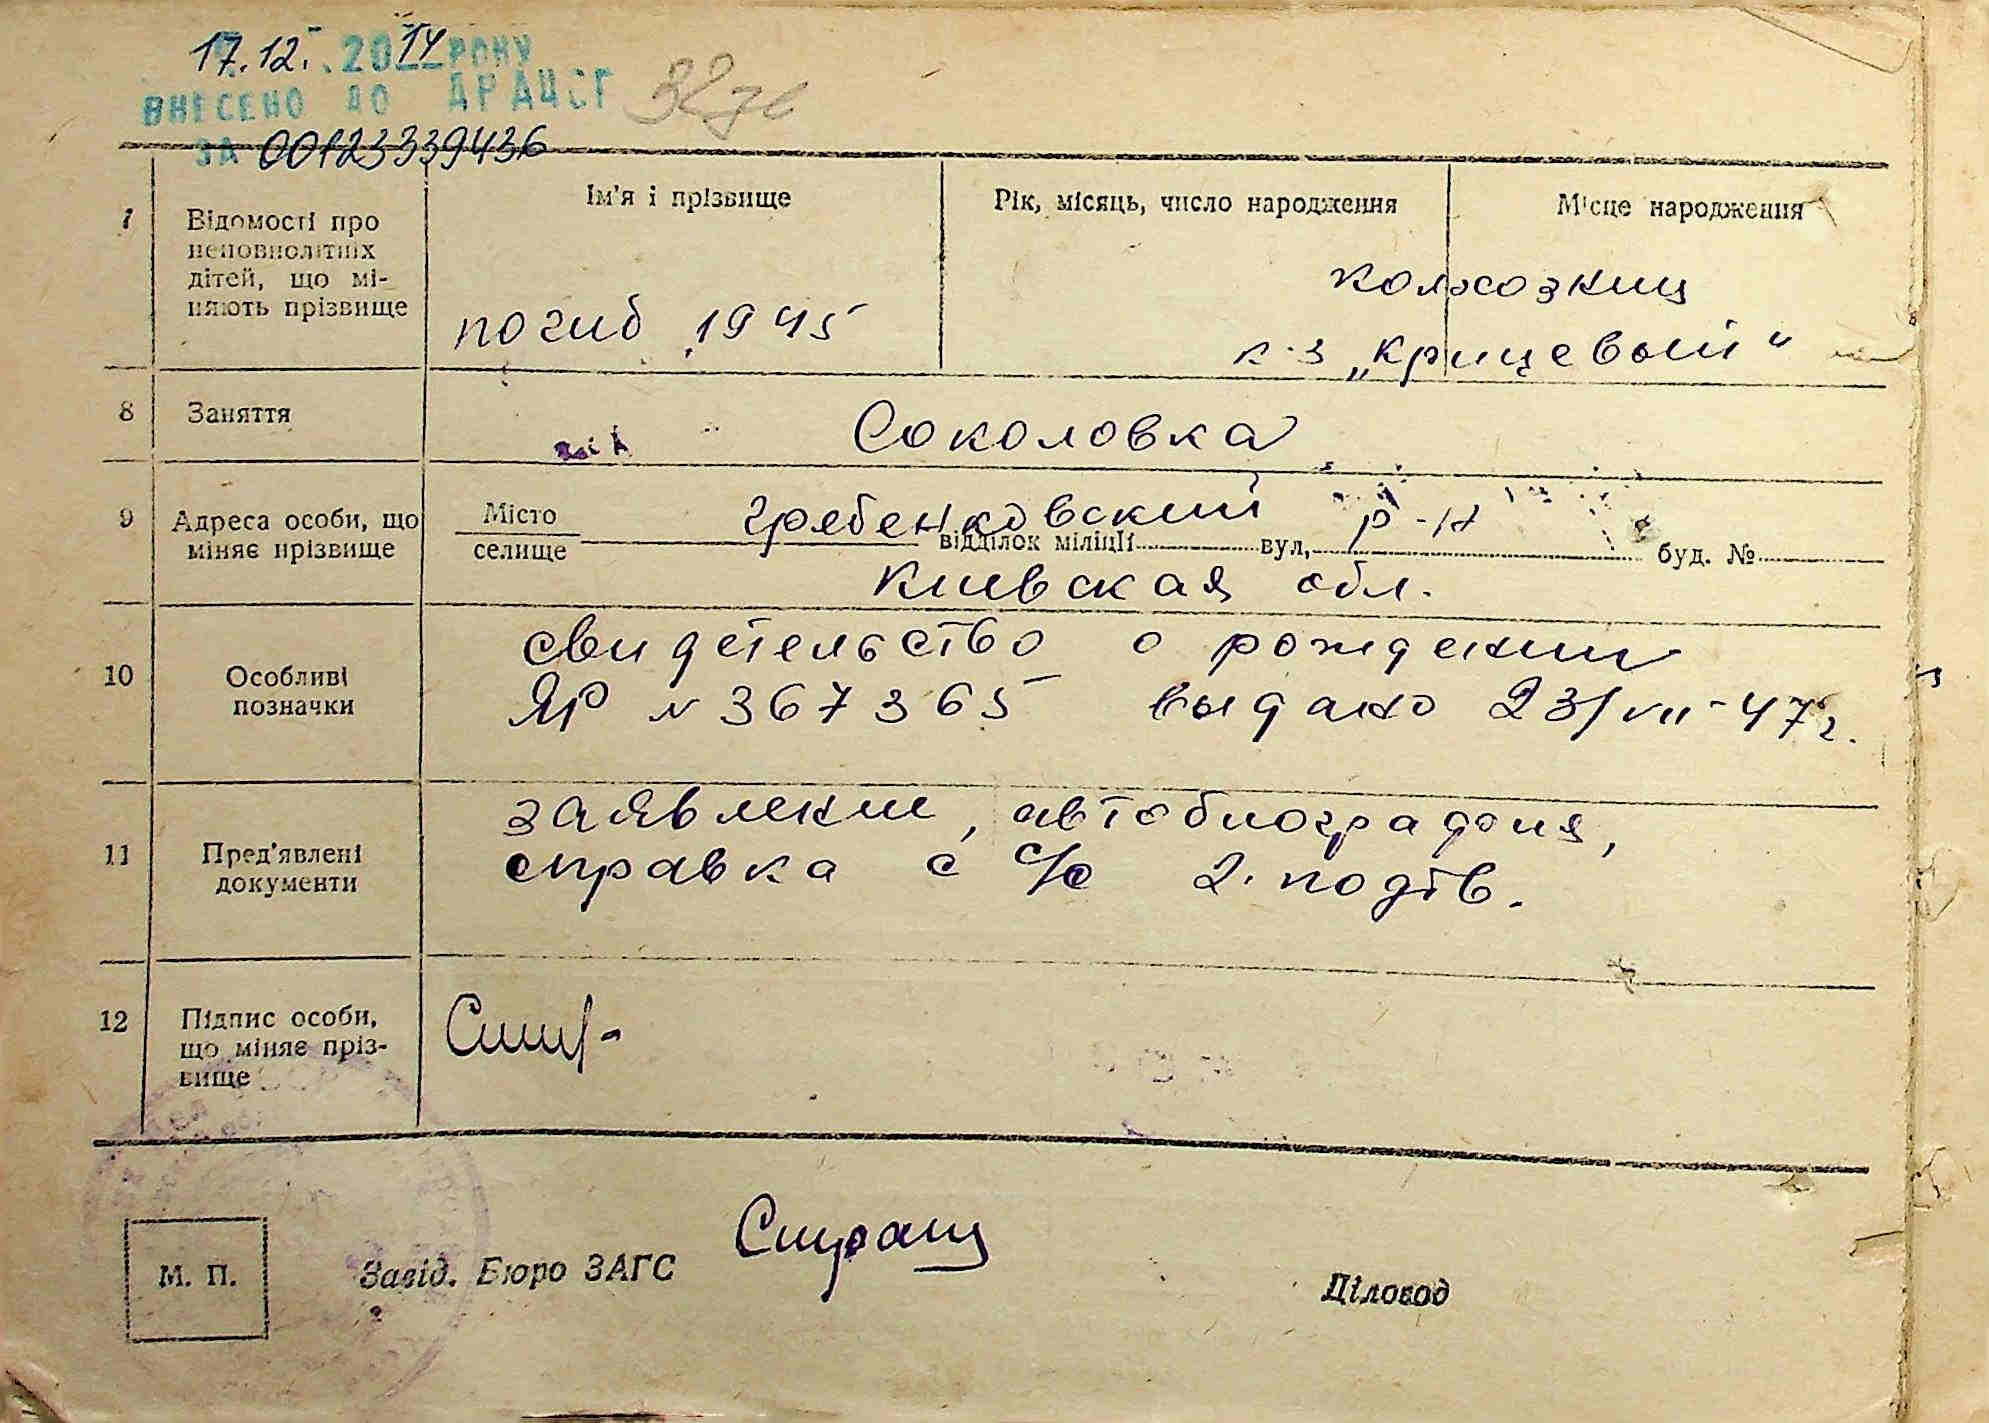 17.12. 2014 РОКУ
ВНЕСЕНО ДО ДРАЦСГ
ЗА 00123339436
Ім'я і прізвище
Рік, місяць, число народження
Місце народження
7
Відомості про
неповнолітніх
дітей, що мі-
няють прізвище
погиб 1945
колхозниц
к-з „Крицевый"
8
Заняття
Соколовка
9
Адреса особи, що
міняє прізвище
Місто
селище
гребенковский р-н
відділок міліції вул, буд. №
Киевская обл.
10
Особливі
позначки
свидетельство о рождении
ЯР № 367365 выдано 23/VII-47 г.
11
Пред'явлені
документи
заявление, автобиография,
справка с с/с 2. подтв.
12
Підпис особи,
що міняє пріз-
вище
М. П.
Завід. Бюро ЗАГС
Діловод